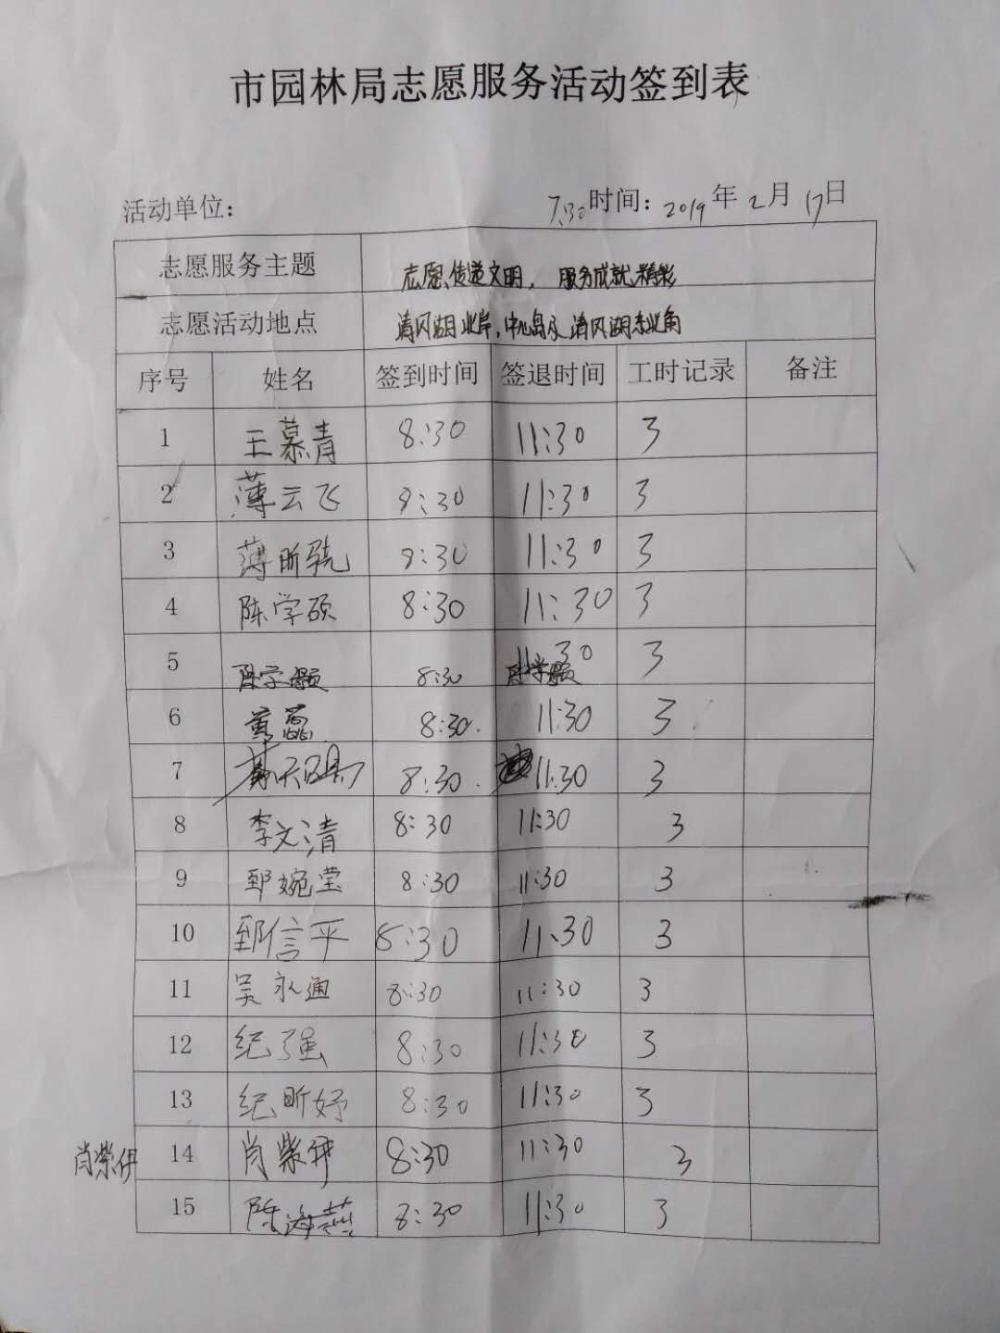 市园林局志愿服务活动签到表
活动单位: 7:30 时间: 2019 年 2 月 17 日
志愿服务主题 志愿传递文明, 服务成就精彩
志愿活动地点 清风湖北岸,中心岛及清风湖东北角
序号 姓名 签到时间 签退时间 工时记录 备注
1 王慕青 8:30 11:30 3
2 薄云飞 8:30 11:30 3
3 薄昕骁 8:30 11:30 3
4 陈学硕 8:30 11:30 3
5 陈学颢 8:30 11:30 陈学颢 3
6 黄蕊 8:30. 11:30 3
7 8:30. 11:30 3
8 李文清 8:30 11:30 3
9 郅婉莹 8:30 11:30 3
10 郅信平 8:30 11:30 3
11 吴永通 8:30 11:30 3
12 纪强 8:30 11:30 3
13 纪昕妤 8:30 11:30 3
肖紫伊 14 肖紫伊 8:30 11:30 3
15 陈海燕 8:30 11:30 3